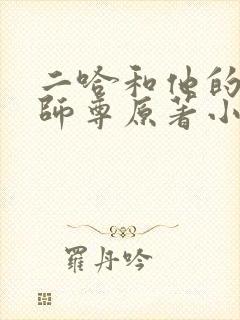 二哈和他的
師尊原著小
羅丹吟